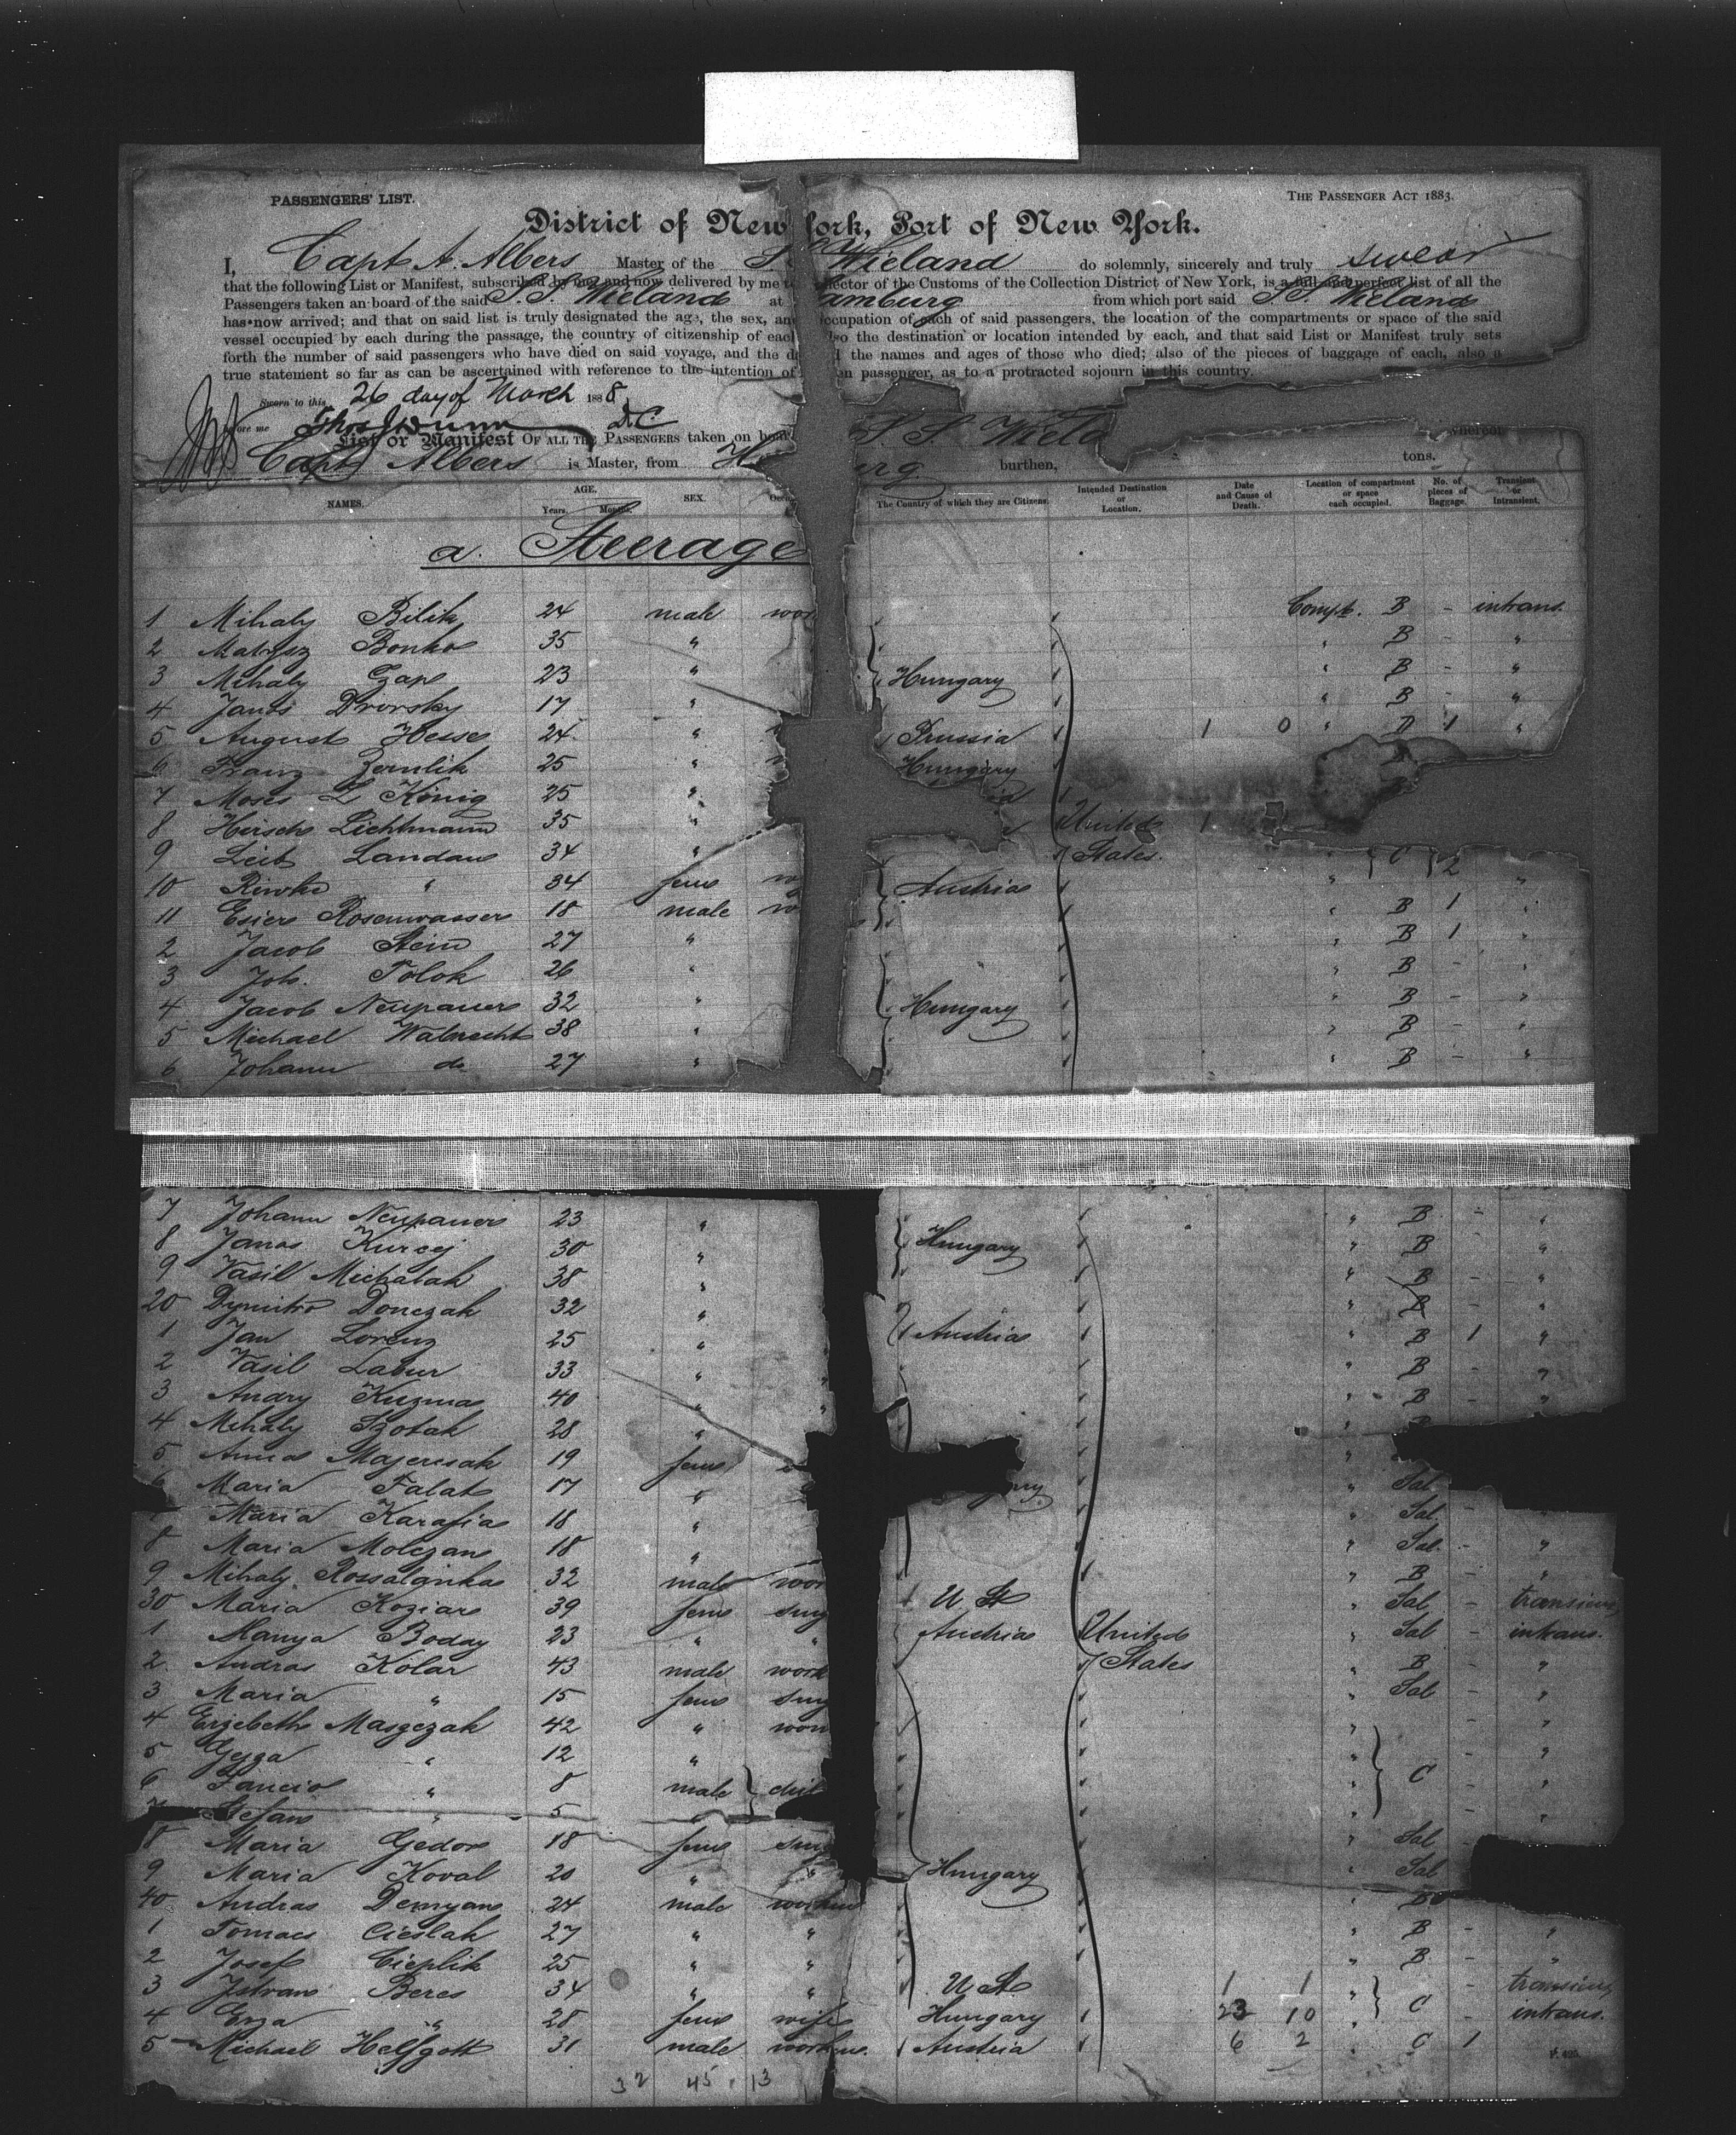 PASSENGERS' LIST.
THE PASSENGER ACT 1883.
District of New York, Port of New York.
I, Capt A. Albers Master of the S.S. Wieland do solemnly, sincerely and truly swear
that the following List or Manifest, subscribed by me, and now delivered by me to Collector of the Customs of the Collection District of New York, is a full and perfect list of all the
Passengers taken on board of the said S.S. Wieland at Hamburg from which port said S.S. Wieland
has now arrived; and that on said list is truly designated the age, the sex, and occupation of each of said passengers, the location of the compartments or space of the said
vessel occupied by each during the passage, the country of citizenship of each also the destination or location intended by each, and that said List or Manifest truly sets
forth the number of said passengers who have died on said voyage, and the d the names and ages of those who died; also of the pieces of baggage of each, also a
true statement so far as can be ascertained with reference to the intention of en passenger, as to a protracted sojourn in this country.
Sworn to this 26 day of March 1888
before me Thos J Dunn DC
List or Manifest OF ALL THE PASSENGERS taken on board S.S. Wiela whereof
Capt Albers is Master, from H urg. burthen, tons.
NAMES. AGE. Years. Months. SEX. Occu The Country of which they are Citizens. Intended Destination or Location. Date and Cause of Death. Location of compartment or space each occupied. No. of pieces of Baggage. Transient or Intransient.
a. Steerage
1 Mihaly Bilik 24 male wor Compt. B - intrans.
2 Matysz Bonko 35 " " B - "
3 Mihaly Zap 23 " Hungary " B - "
4 Janos Drorsky 17 " " B - "
5 August Hesse 24 " Prussia 1 0 " B 1 "
6 Franz Zernlik 25 " Hungary
7 Moses L König 25 "
8 Hersch Lichtmann 35 " United 1
9 Leib Landau 34 " States. " C 2
10 Riwke " 34 fem w Austria " "
11 Esier Rosenwasser 18 male w " B 1 "
2 Jacob Stein 27 " " B 1 "
3 Joh. Tolok 26 " " B - "
4 Jacob Neupauer 32 " Hungary " B - "
5 Michael Walnecht 38 " " B - "
6 Johann do 27 " " B - "
7 Johann Neupauer 23 " " B - "
8 Janos Kurcej 30 " Hungary " B - "
9 Vasil Michalak 38 " " B - "
20 Dymitro Donczak 32 " " B - "
1 Jan Lorenz 25 " Austria " B 1 "
2 Vasil Labur 33 " " B - "
3 Andry Kuzma 40 " " B - "
4 Mihaly Szotak 28 " "
5 Anna Majerisak 19 fem "
6 Maria Falat 17 " " Sal
Maria Karafia 18 " " Sal. "
8 Maria Molczan 18 " " Sal - "
9 Mihaly Rossalgnka 32 male wor " B - "
30 Maria Koziar 39 fem sing U St " Sal - transient
1 Manya Boday 23 " " Austria United " Sal - intrans.
2 Andras Kolar 43 male work States " B - "
3 Maria " 15 fem sing " Sal - "
4 Erzebeth Maszczak 42 " wom " - "
5 Gejza " 12 " " - "
6 Fancio " 8 male chil " C - "
7 Stefan " 5 " " - "
8 Maria Gedor 18 fem sing " Sal -
9 Maria Koval 20 " " Hungary " Sal
40 Andras Demyan 24 male workm " B
1 Tomacs Cieslak 27 " " " B - "
2 Josef Cieplik 25 " " " B - "
3 Istvan Beres 34 " " U St 1 1 " - transient
4 Erza " 28 fem wife Hungary 23 10 " C - intrans.
5 Michael Helfgott 31 male workm. Austria 6 2 " C 1
32 45 13